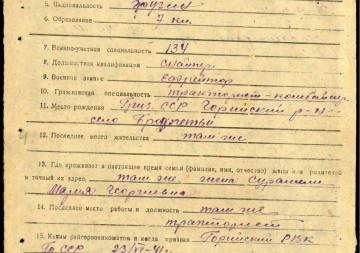 5. Национальность Грузин
6. Образование 7 кл.
7. Военно-учетная специальность 134
8. Должностная квалификация снайпер
9. Военное звание ефрейтор
10. Гражданская специальность тракторист-комбайнер
11. Место рождения Груз. ССР Горийский р-н
село
12. Последнее место жительства там же
13. Где проживает в настоящее время семья (фамилия, имя, отчество) жены или родителей
и точный их адрес там же, жена
Мария Георгиевна
14. Последнее место работы и должность там же
тракторист
15. Каким райгорвоенкоматом и когда призван Горийский РВК
Гр ССР 23/VI-41г.